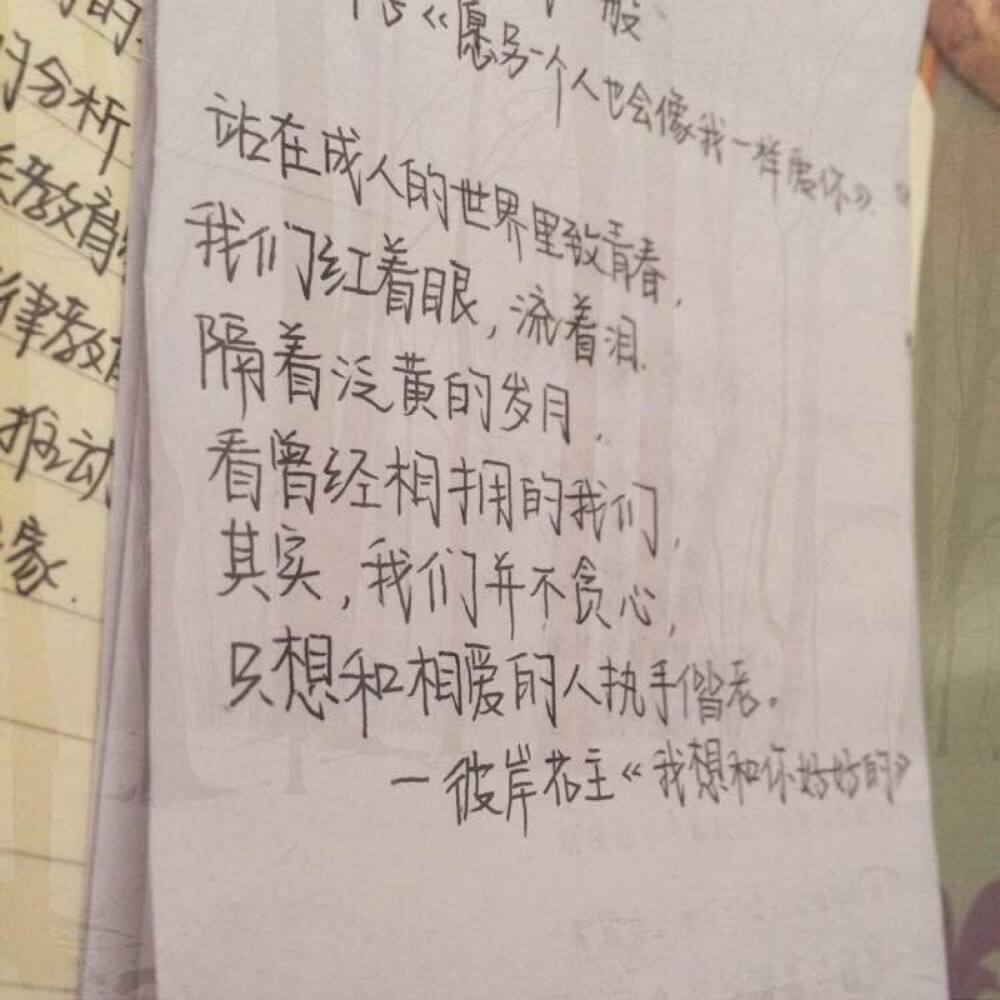 般
《愿另一个人也会像我一样爱你》
站在成人的世界里致青春，
我们红着眼，流着泪.
隔着泛黄的岁月，
看曾经相拥的我们，
其实，我们并不贪心，
只想和相爱的人执手偕老。
一彼岸花主《我想和你好好的》
的分析
教育
律教育
推动
家.